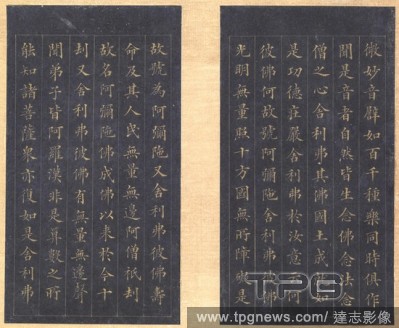 微妙音譬如百千種樂同時俱作
聞是音者自然皆生念佛念法念
僧之心舍利弗其佛國土成就如
是功德莊嚴舍利弗於汝意云何
彼佛何故號阿彌陀舍利弗彼佛
光明無量照十方國無所障礙是
故號為阿彌陀又舍利弗彼佛壽
命及其人民無量無邊阿僧祇劫
故名阿彌陀佛成佛以來於今十
劫又舍利弗彼佛有無量無邊聲
聞弟子皆阿羅漢非是算數之所
能知諸菩薩眾亦復如是舍利弗
TPG
www.tpgnews.com / 達志影像